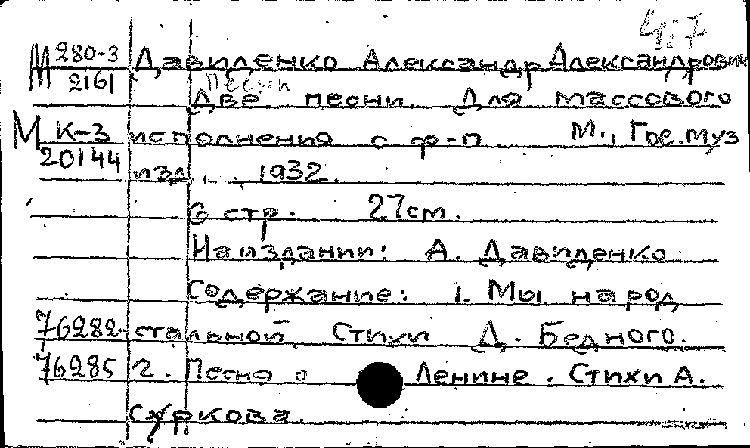 4.7
М 280-3 Давиденко Александр Александрович
2161 Песни
Две песни. Для массового
М К-3 исполнения с ф-п. М., Гос. муз
20144
изд., 1932.
6 стр. 27см.
На издании: А. Давиденко
Содержание: 1. Мы народ
76282 стальной. Стихи Д. Бедного.
76285 2. Песня о Ленине. Стихи А.
Суркова.